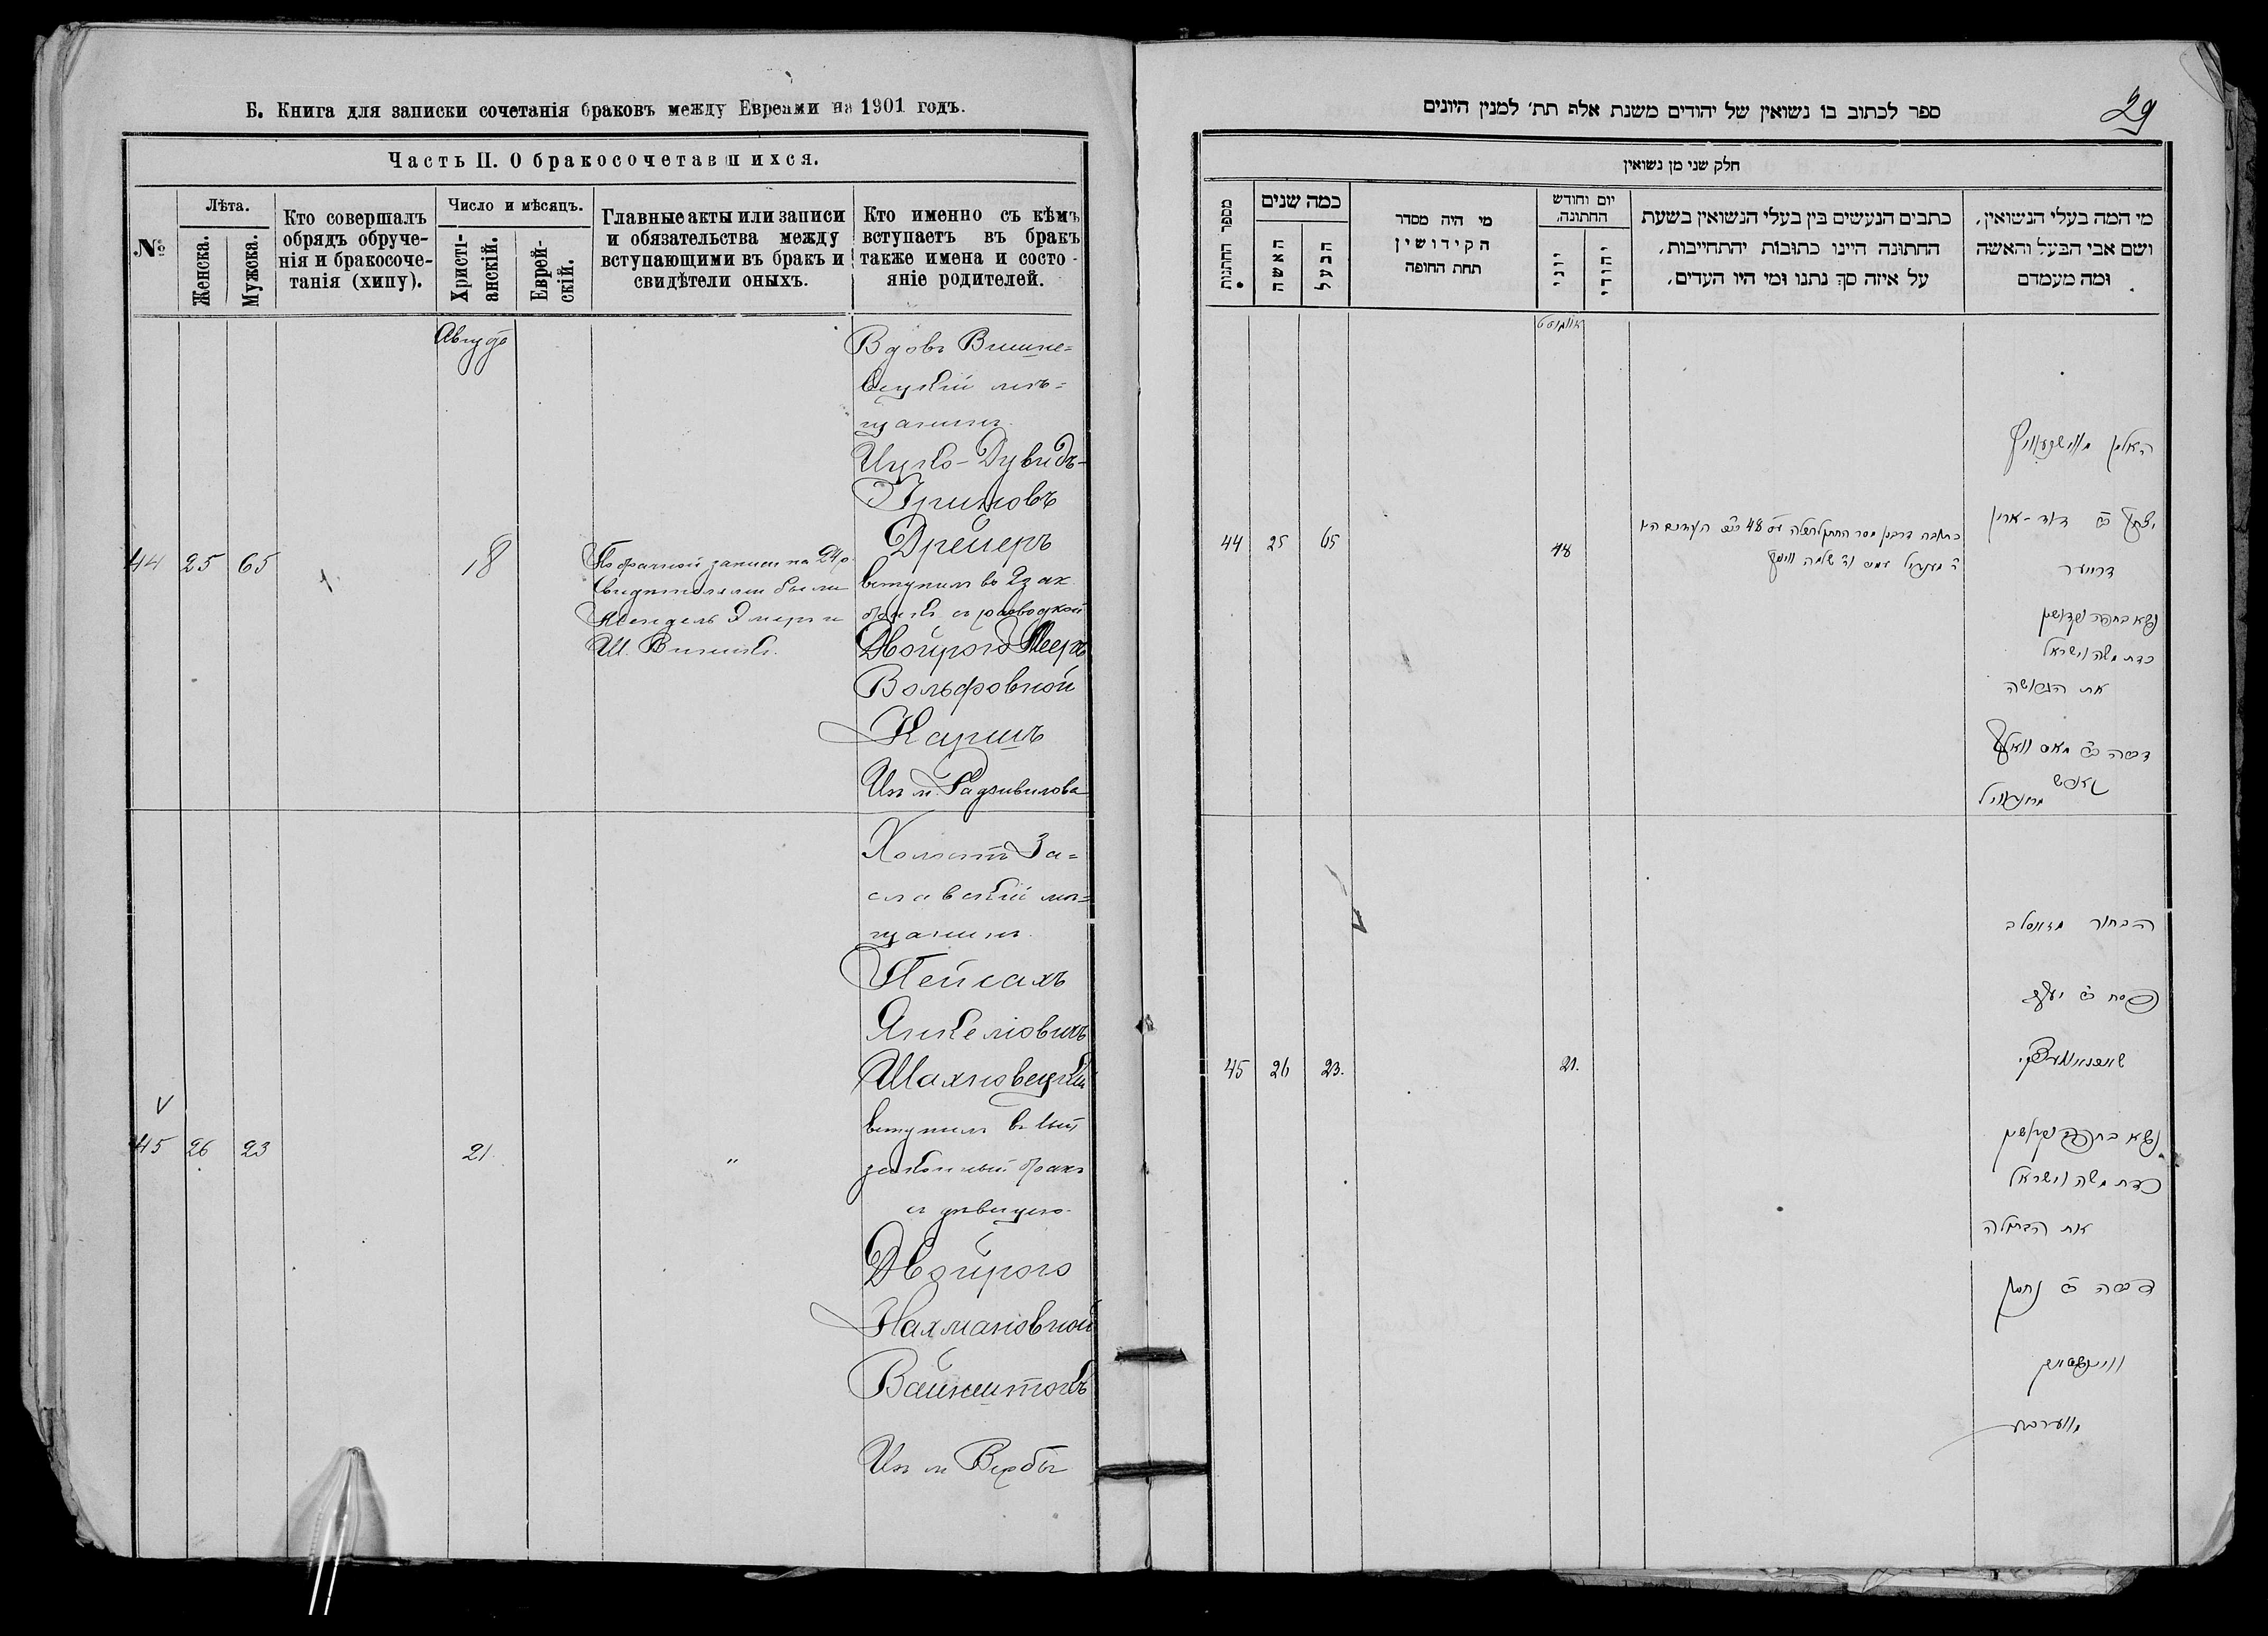 Б. Книга для записки сочетанія браковъ между Евреами на 1901 годъ.
Часть II. О бракосочетавшихся.
№
Лѣта.
Женска.
Мужска.
Кто совершалъ обрядъ обруче-
нія и бракосоче-
танія (хипу).
Число и мѣсяцъ.
Христі-
анскій.
Еврей-
скій.
Главные акты или записи
и обязательства между
вступающими въ бракъ и
свидѣтели оныхъ.
Кто именно съ кѣмъ
вступаетъ въ бракъ
также имена и состо-
яніе родителей.
Августъ
44 25 65
18
По брачной записи на 24 р
свидѣтелями были
Мендель и
Ш.
Вдовъ Вишне-
вецкій мѣ-
щанинъ
Ицко-Дувидъ-
Дрейеръ
вступилъ въ 2 зак
бракъ съ разводкой
Двойрою
Вольфовной
Капишъ
Изъ м. Радзивилова
45 26 23
21.
"
Холостъ За-
славскій мѣ-
щанинъ
Пейсахъ
Янкеліовичъ
Шахновецкій
вступилъ въ 1ый
законный бракъ
съ дѣвицею
Двойрою
Нахмановной
Вайнштокъ
Изъ м Вербы
29
ספר לכתוב בו נשואין של יהודים משנת אלף תת׳ למנין היונים
חלק שני מן נשואין
מספר החתנות
כמה שנים
האשה
הבעל
מי היה מסדר
הקידושין
תחת החופה
יום וחודש
החתונה.
יוני
יהודי
כתבים הנעשים בין בעלי הנשואין בשעת
החתונה היינו כתובות יהתחייבות,
על איזה סך נתנו ומי היו העדים,
מי המה בעלי הנשואין,
ושם אבי הבעל והאשה
ומה מעמדם
אווגוסט
44 25 65
18
האלמן
יצחק דוד
דרייער
נשא בחופה וקדושין
כדת משה וישראל
את הגרושה
45 26 23.
21.
הבחור מזאסלב
פסח יעקב
נשא בחופה וקדושין
כדת משה וישראל
את הבתולה
נחמן
וויינשטיין
מווערבע